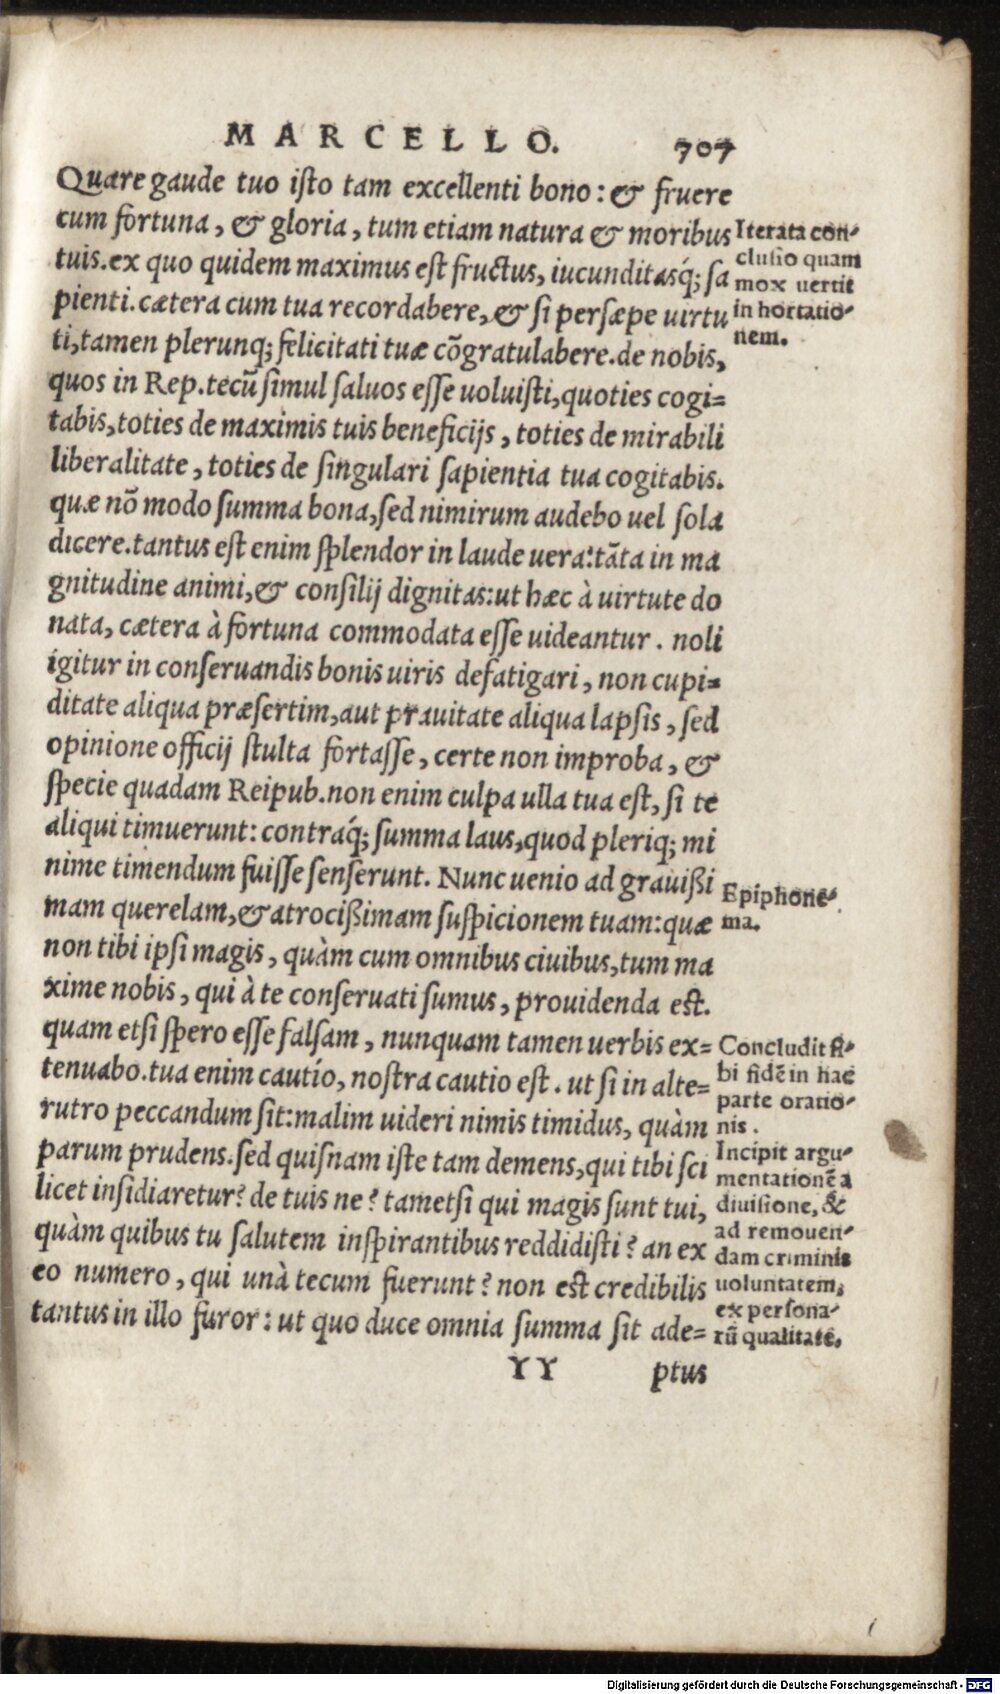 MARCELLO. 707
Quare gaude tuo iſto tam excellenti bono: & fruere
cum fortuna, & gloria, tum etiam natura & moribus
tuis. ex quo quidem maximus eſt fructus, iucunditasq́; ſa
pienti. cætera cum tua recordabere, & ſi perſæpe uirtu
ti, tamen plerunq; felicitati tuæ cõgratulabere. de nobis,
quos in Rep. tecũ ſimul ſaluos eſſe uoluiſti, quoties cogi=
tabis, toties de maximis tuis beneficijs, toties de mirabili
liberalitate, toties de ſingulari ſapientia tua cogitabis.
quæ nõ modo ſumma bona, ſed nimirum audebo uel ſola
dicere. tantus eſt enim ſplendor in laude uera: tãta in ma
gnitudine animi, & conſilij dignitas: ut hæc à uirtute do
nata, cætera à fortuna commodata eſſe uideantur. noli
igitur in conſeruandis bonis uiris defatigari, non cupi=
ditate aliqua præſertim, aut prauitate aliqua lapſis, ſed
opinione officij ſtulta fortaſſe, certe non improba, &
ſpecie quadam Reipub. non enim culpa ulla tua eſt, ſi te
aliqui timuerunt: contraq́; ſumma laus, quod pleriq; mi
nime timendum fuiſſe ſenſerunt. Nunc uenio ad grauißi
mam querelam, & atrocißimam ſuſpicionem tuam: quæ
non tibi ipſi magis, quàm cum omnibus ciuibus, tum ma
xime nobis, qui à te conſeruati ſumus, prouidenda eſt.
quam etſi ſpero eſſe falſam, nunquam tamen uerbis ex=
tenuabo. tua enim cautio, noſtra cautio eſt. ut ſi in alte=
rutro peccandum ſit: malim uideri nimis timidus, quàm
parum prudens. ſed quiſnam iſte tam demens, qui tibi ſci
licet inſidiaretur? de tuis ne? tametſi qui magis ſunt tui,
quàm quibus tu ſalutem inſpirantibus reddidiſti? an ex
eo numero, qui unà tecum fuerunt? non eſt credibilis
tantus in illo furor: ut quo duce omnia ſumma ſit ade=
YY ptus
Iterata con-
cluſio quam
mox uertit
in hortatio-
nem.
Epiphone-
ma.
Concludit ſi-
bi fidẽ in hac
parte oratio-
nis.
Incipit argu-
mentationẽ a
diuiſione, &
ad remouen-
dam criminis
uoluntatem,
ex perſona-
rũ qualitate.
Digitalisierung gefördert durch die Deutsche Forschungsgemeinschaft - DFG